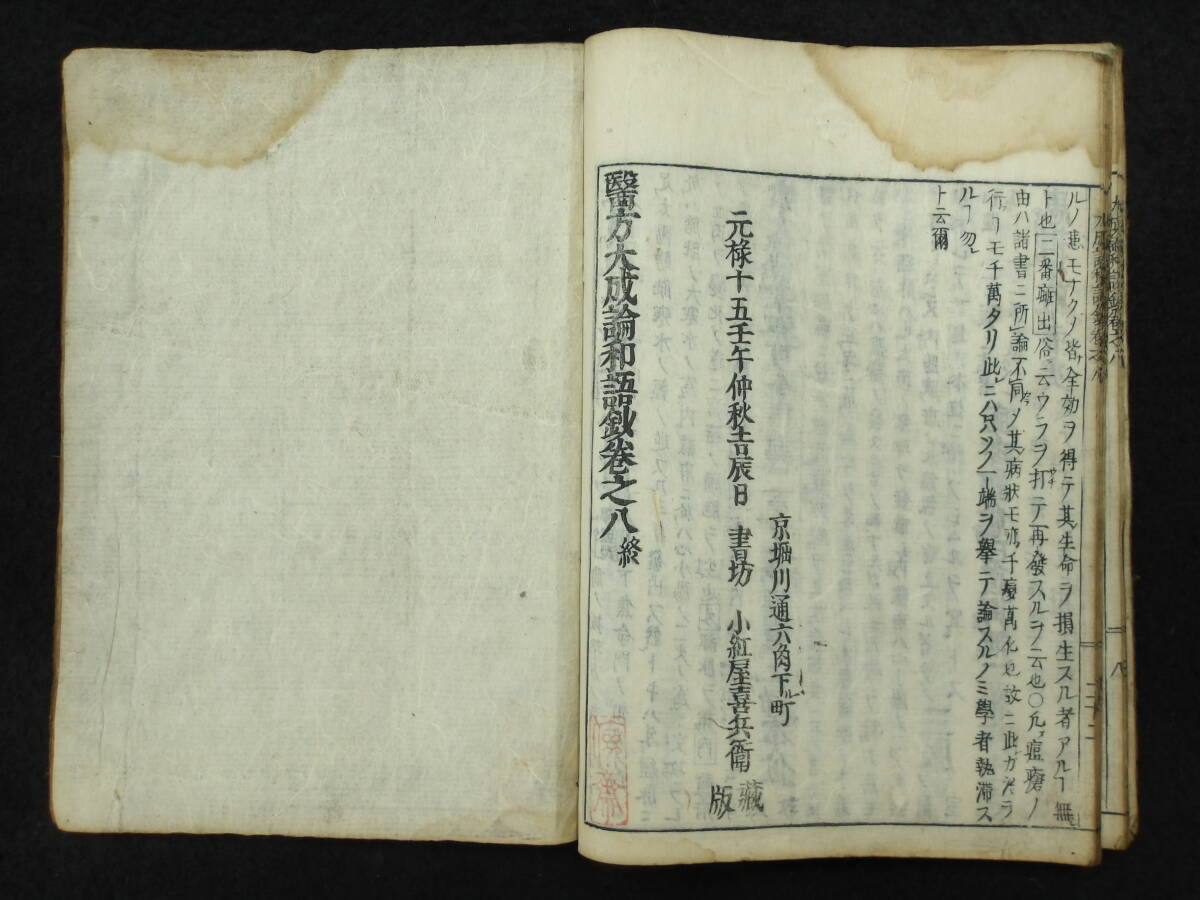 ルノ患モナクノ皆全効ヲ得テ其生命ヲ損生スル者アルヿ無
ト也二番癰出俗ニ云ウラヲ打テ再發スルヲ云也〇凡瘟瘡ノ
由ハ諸書ニ所論不同〆其病狀モ亦千變萬化也故ニ此ガ
行ヿモ千萬タリ此ニハ只ソノ一端ヲ擧テ論スルノミ學者執滞ス
ルヿ勿レ
ト云爾
京堀川通六角下ル町
元祿十五壬午仲秋吉辰日 書坊 小紅屋喜兵衛
藏版
醫方大成論和語鈔卷之八終